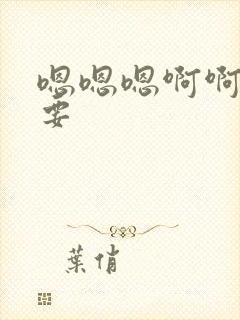 嗯嗯嗯啊啊
要
葉俏